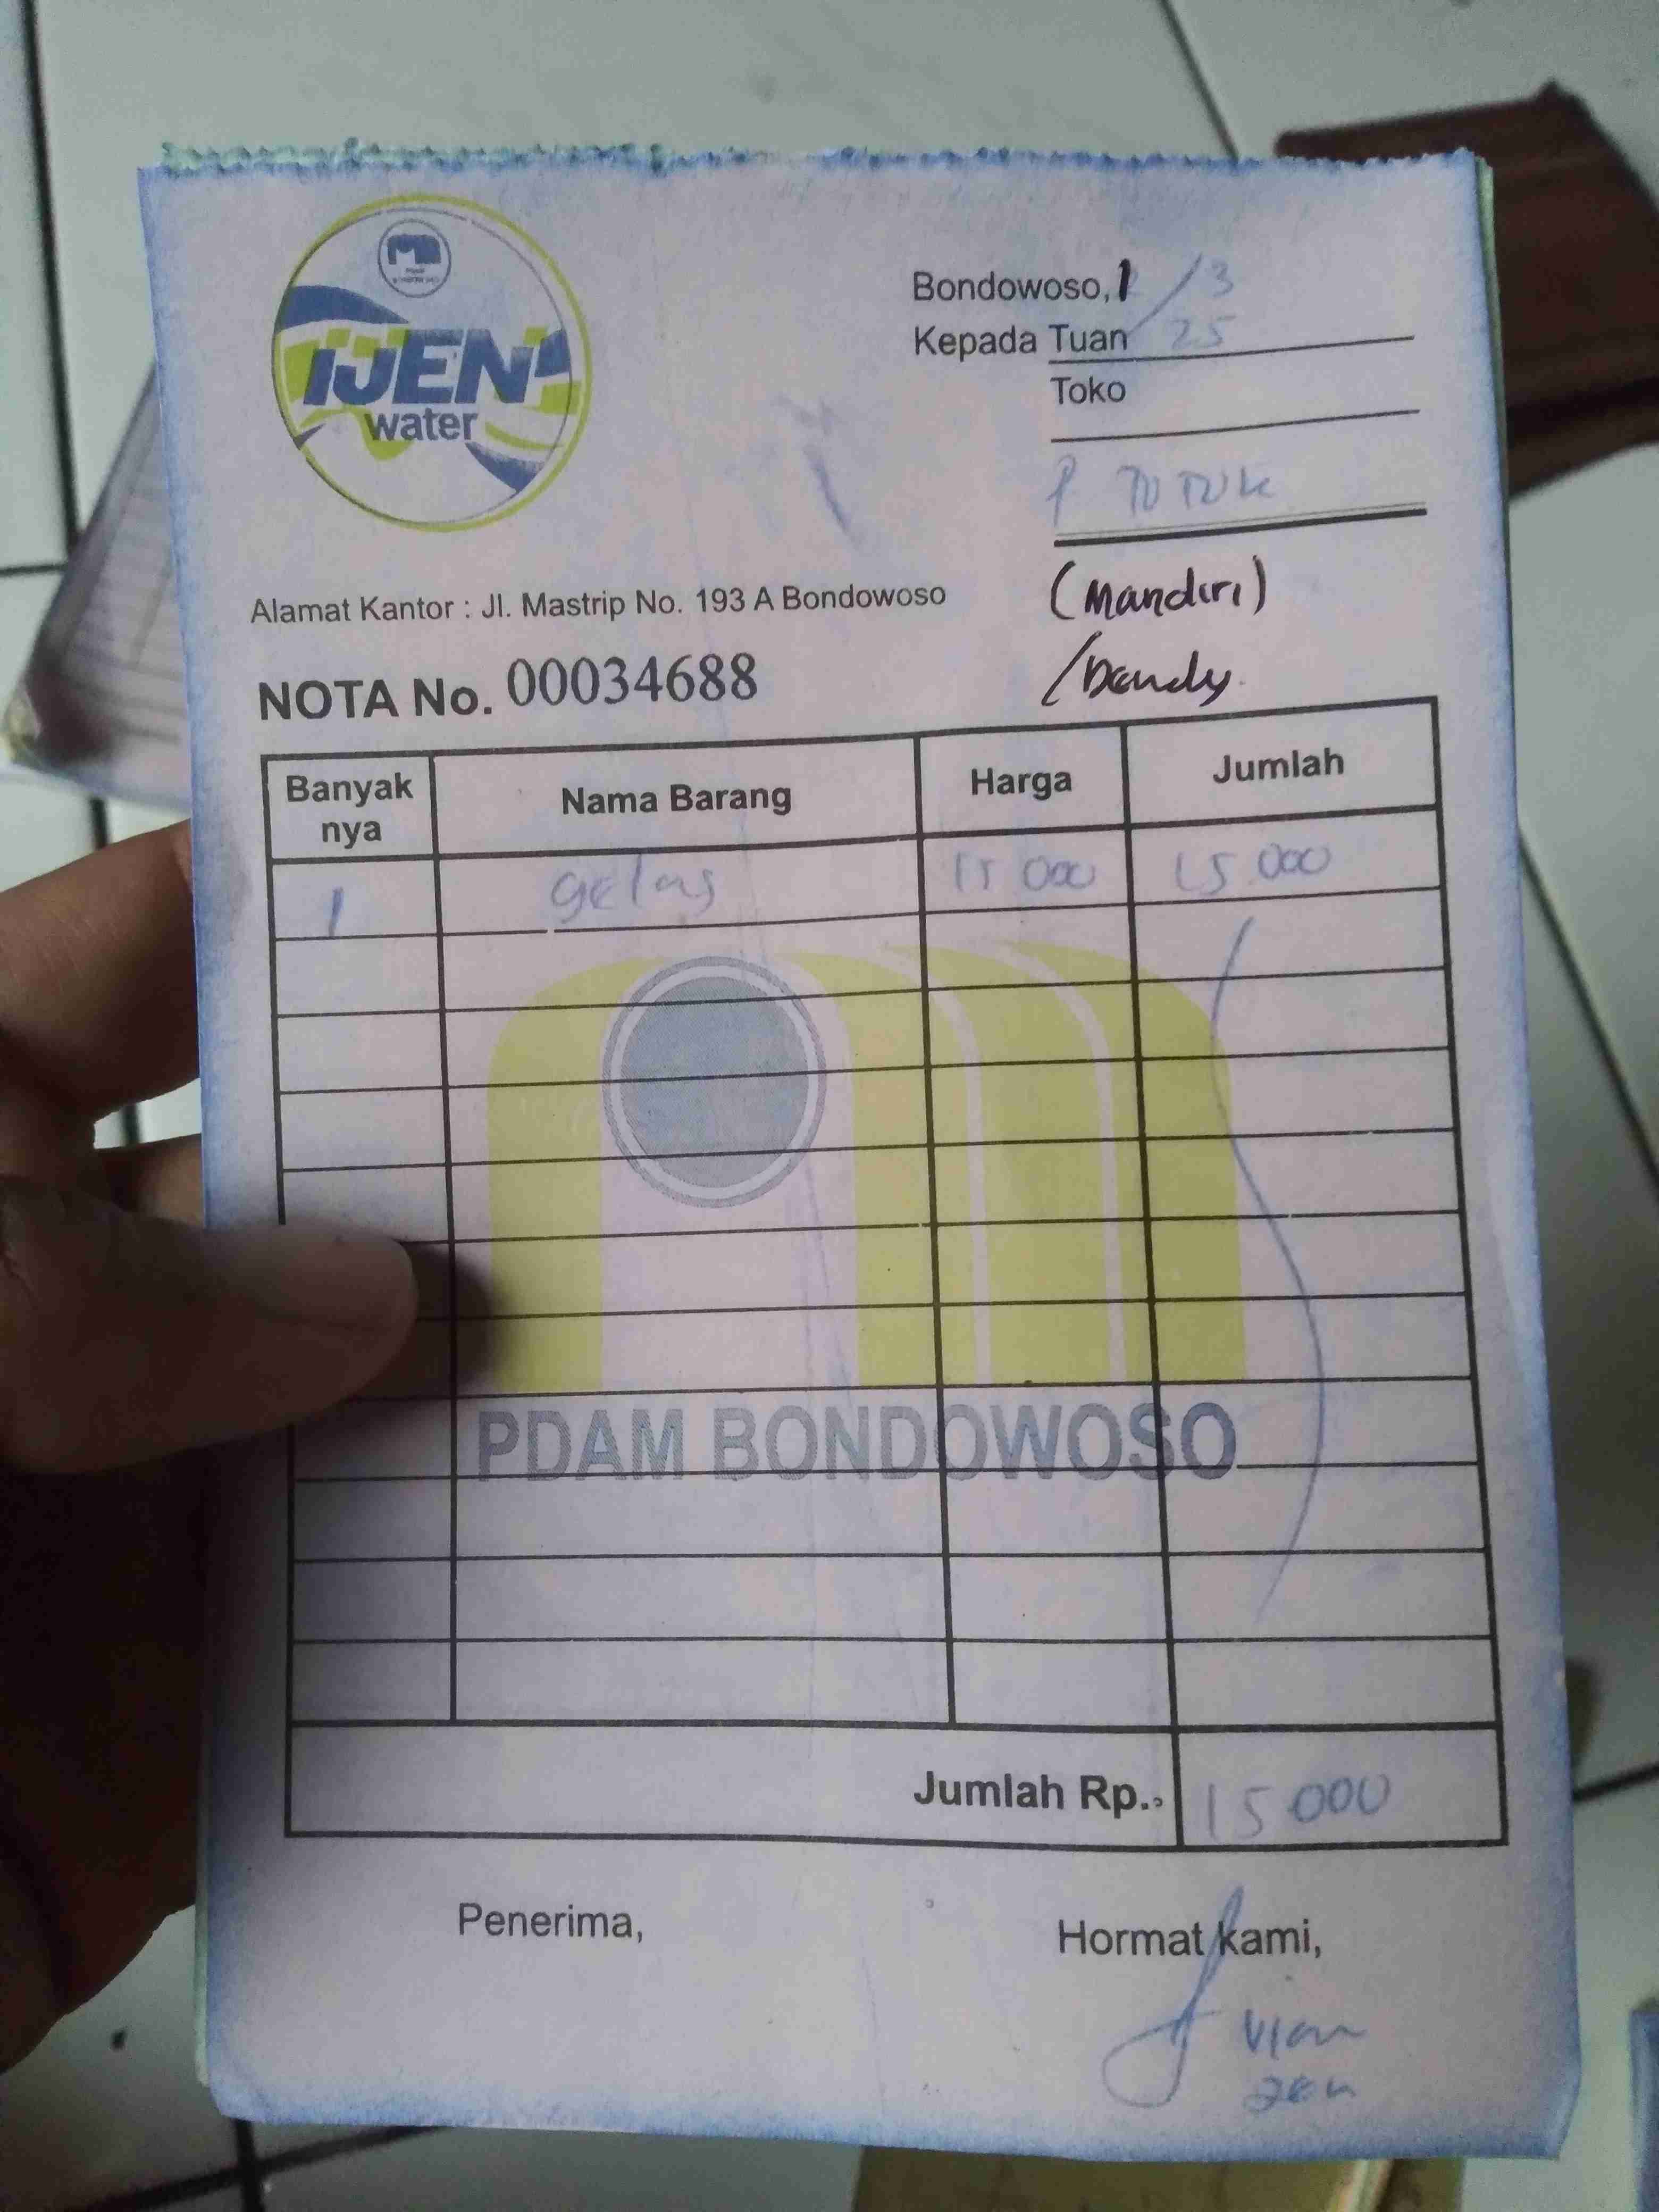 IJEN
water
Bondowoso, 1/3
Kepada Tuan 25
Toko
P TUTUK
Alamat Kantor : Jl. Mastrip No. 193 A Bondowoso
(Mandiri)
NOTA No. 00034688
/Dendy
Banyak nya Nama Barang Harga Jumlah
1 gelas 15 000 15.000
PDAM BONDOWOSO
Jumlah Rp. 15 000
Penerima,
Hormat kami,